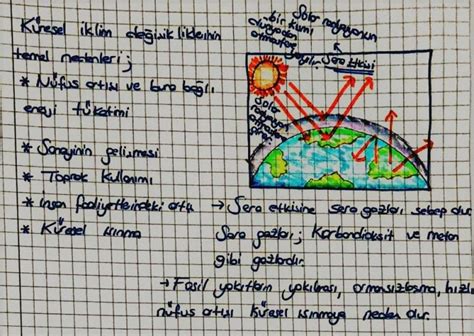 Küresel iklim değişikliklerinin
temel nedenleri ;
* Nüfus artışı ve buna bağlı
enerji tüketimi
* Sanayinin gelişmesi
* Toprak kullanımı
* İnsan faaliyetlerindeki artış
* Küresel ısınma
Solar radyasyonun
bir kısmı
Sera Etkisi
Solar
radyasyon
→ Sera etkisine sera gazları sebep olur.
Sera gazları; Karbondioksit ve metan
gibi gazlardır.
→ Fosil yakıtların yakılması, ormansızlaşma, hızlı
nüfus artışı Küresel ısınmaya neden olur.